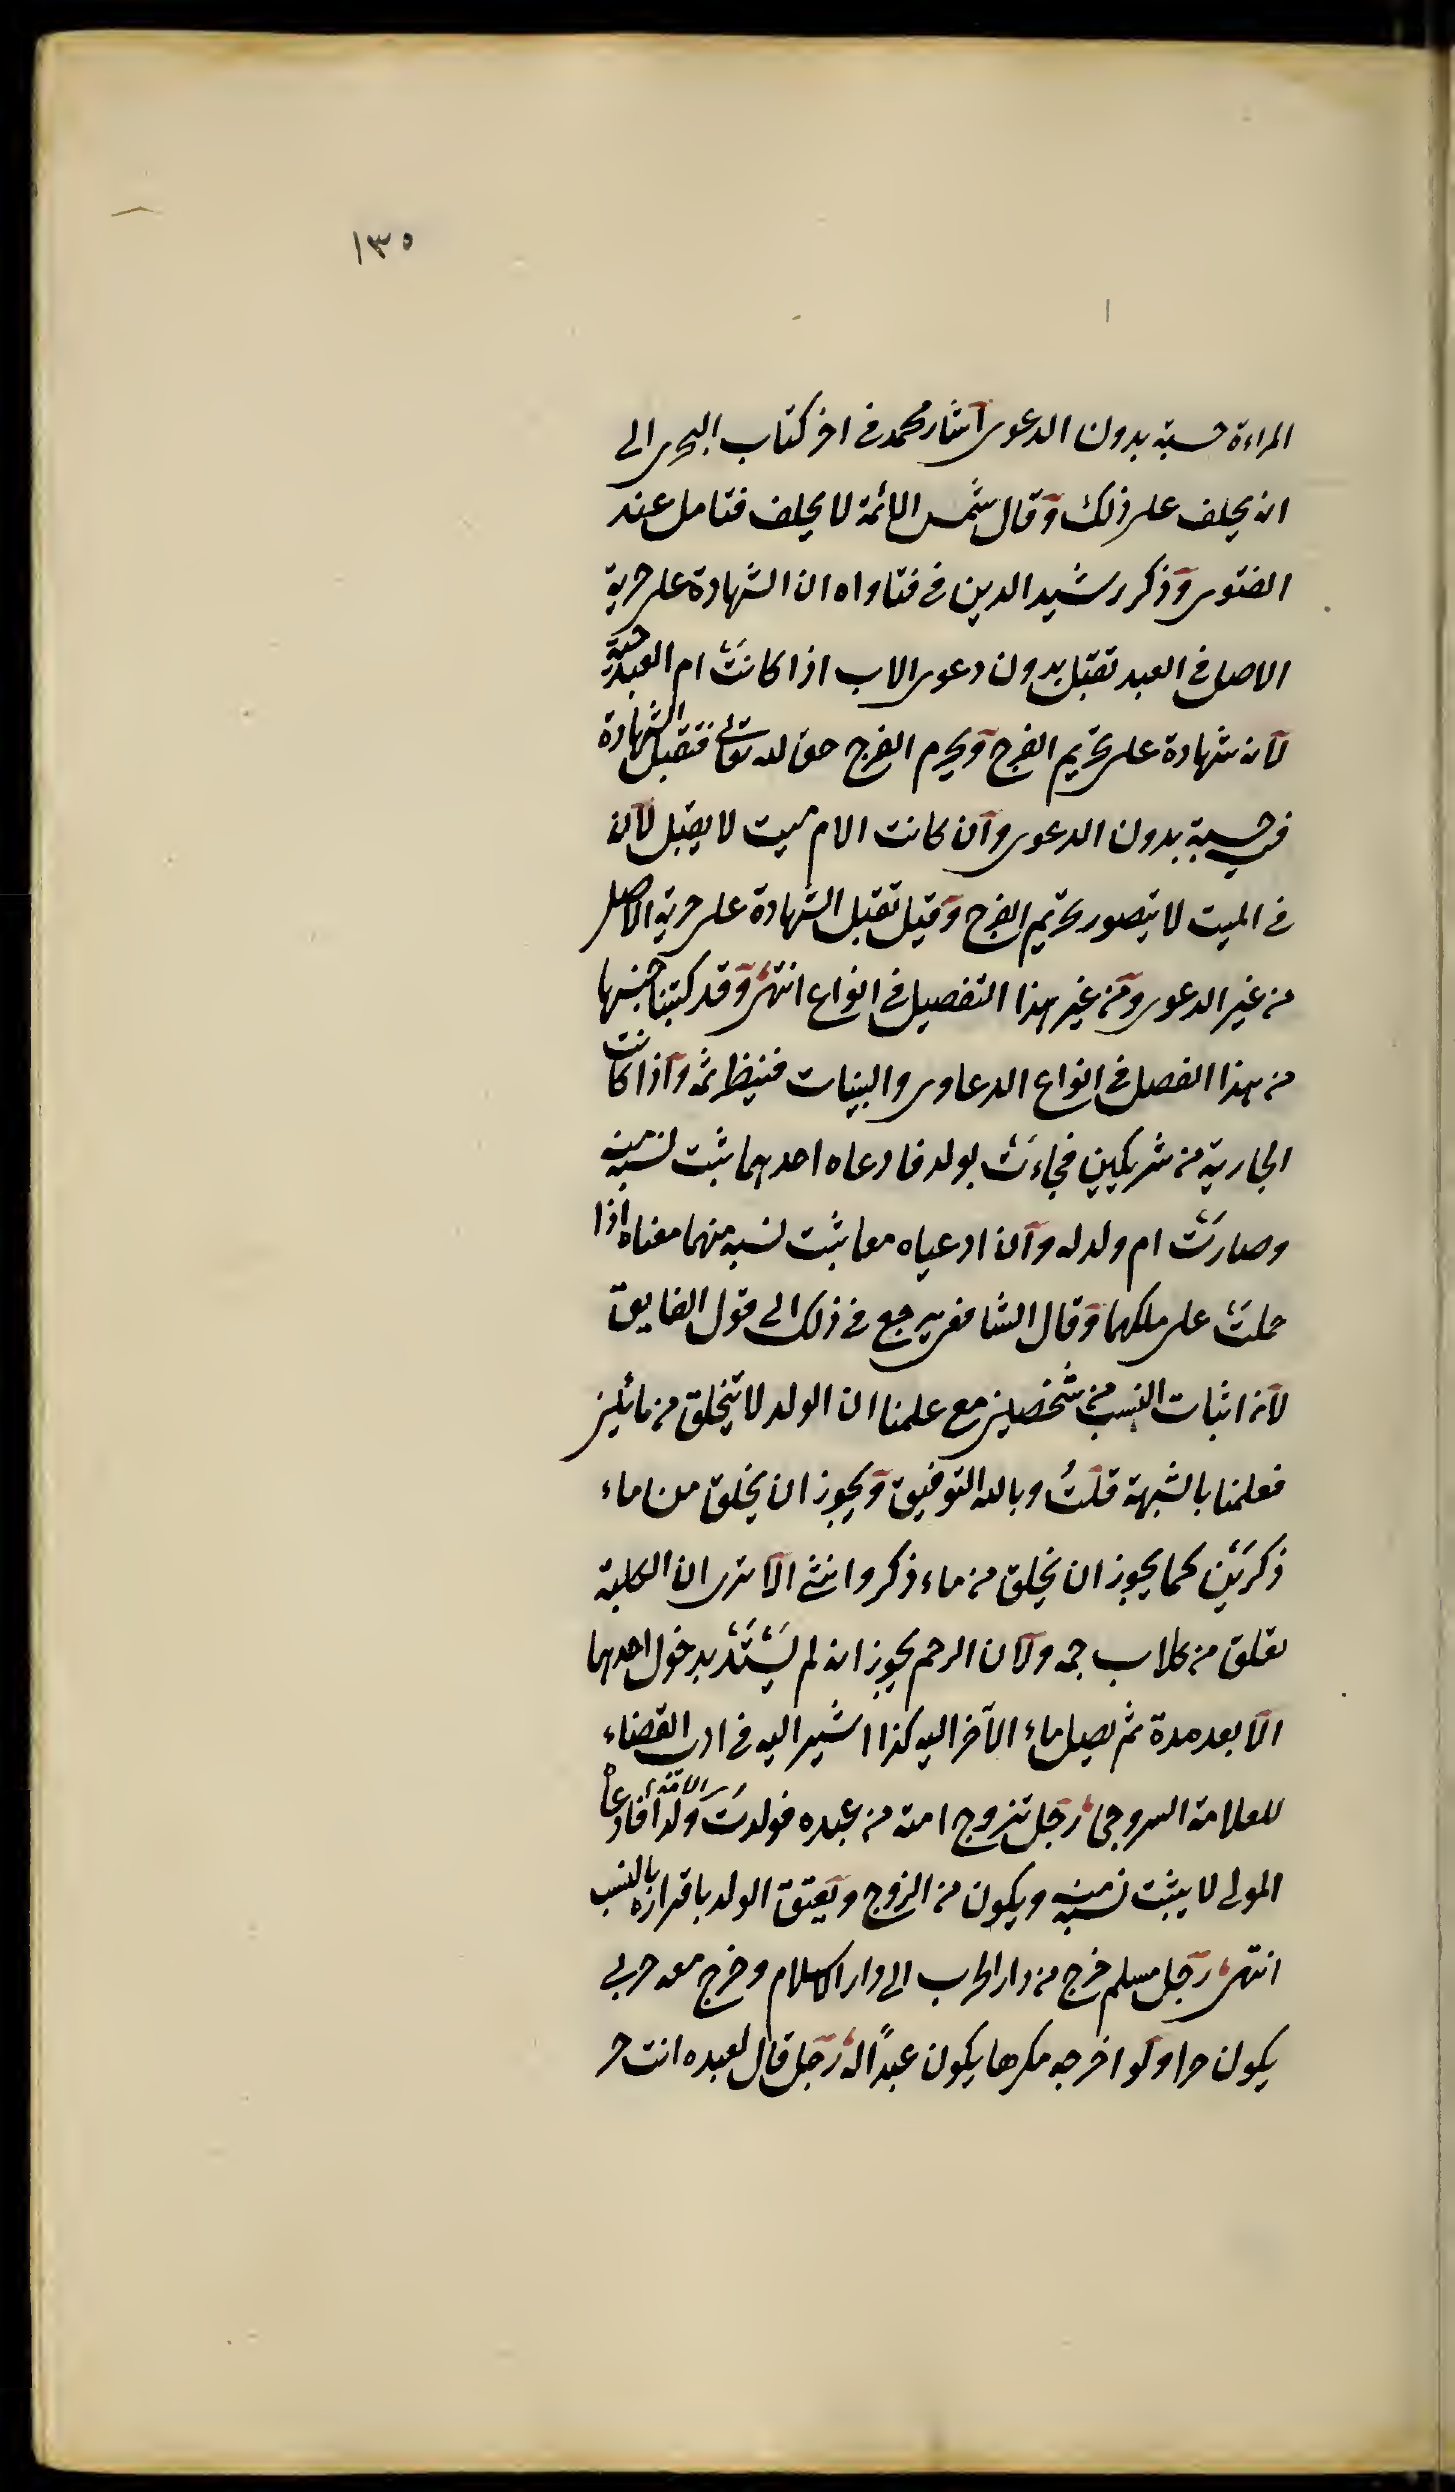 ١٣٥
المراءة حسبة بدون الدعوى اشار محمد فى اخر كتاب التحرى الى
انه يحلف على ذلك وقال شمس الائمة لا يحلف فتامل عند
الفتوى وذكر رشيد الدين فى فتاواه ان الشهادة على حرية
الاصل فى العبد تقبل بدون دعوى الاب اذا كانت ام العبد حية
لانه شهادة على تحريم الفرج وتحريم الفرج حق لله تعالى فتقبل الشهادة
فيه حسبة بدون الدعوى وان كانت الام ميت لا يقبل لان
فى الميت لا يتصور تحريم الفرج وقيل تقبل الشهادة على حرية الاصل
من غير الدعوى ومن غير هذا التفصيل فى انواع انتهى وقد كتبنا جنسها
من هذا الفصل فى انواع الدعاوى والبينات فينظر ثمه واذا كانت
الجارية من شريكين فجاءت بولد فادعاه احدهما ثبت نسبه منه
وصارت ام ولد له وان ادعياه معا ثبت نسبه منهما معناه اذا
حملت على ملكهما وقال الشافعى يرجع فى ذلك الى قول القايف
لانه اثبات النسب من شخصين مع علمنا ان الولد لا يتخلق من مائين
فعلمنا بالشبهة قلت وبالله التوفيق ويجوز ان يخلق من ماء
ذكرين كما يجوز ان يخلق من ماء ذكر وانثى الا ترى ان الكلبة
تعلق من كلاب جمة ولان الرحم يجوز انه لم يستد بدخول احدهما
الا بعد مدة ثم يصل ماء الآخر اليه كذا اشير اليه فى ادب القضاء
للعلامة السروجى رجل تزوج امة من عبده فولدت الامة ولدا فادعاه
المولى لا يثبت نسبه منه ويكون من الزوج ويعتق الولد باقراره بالنسب
انتهى رجل مسلم خرج من دار الحرب الى دار الاسلام وخرج معه حربى
يكون حرا ولو اخرجه مكرها يكون عبدًا له رجل قال لعبده انت حر